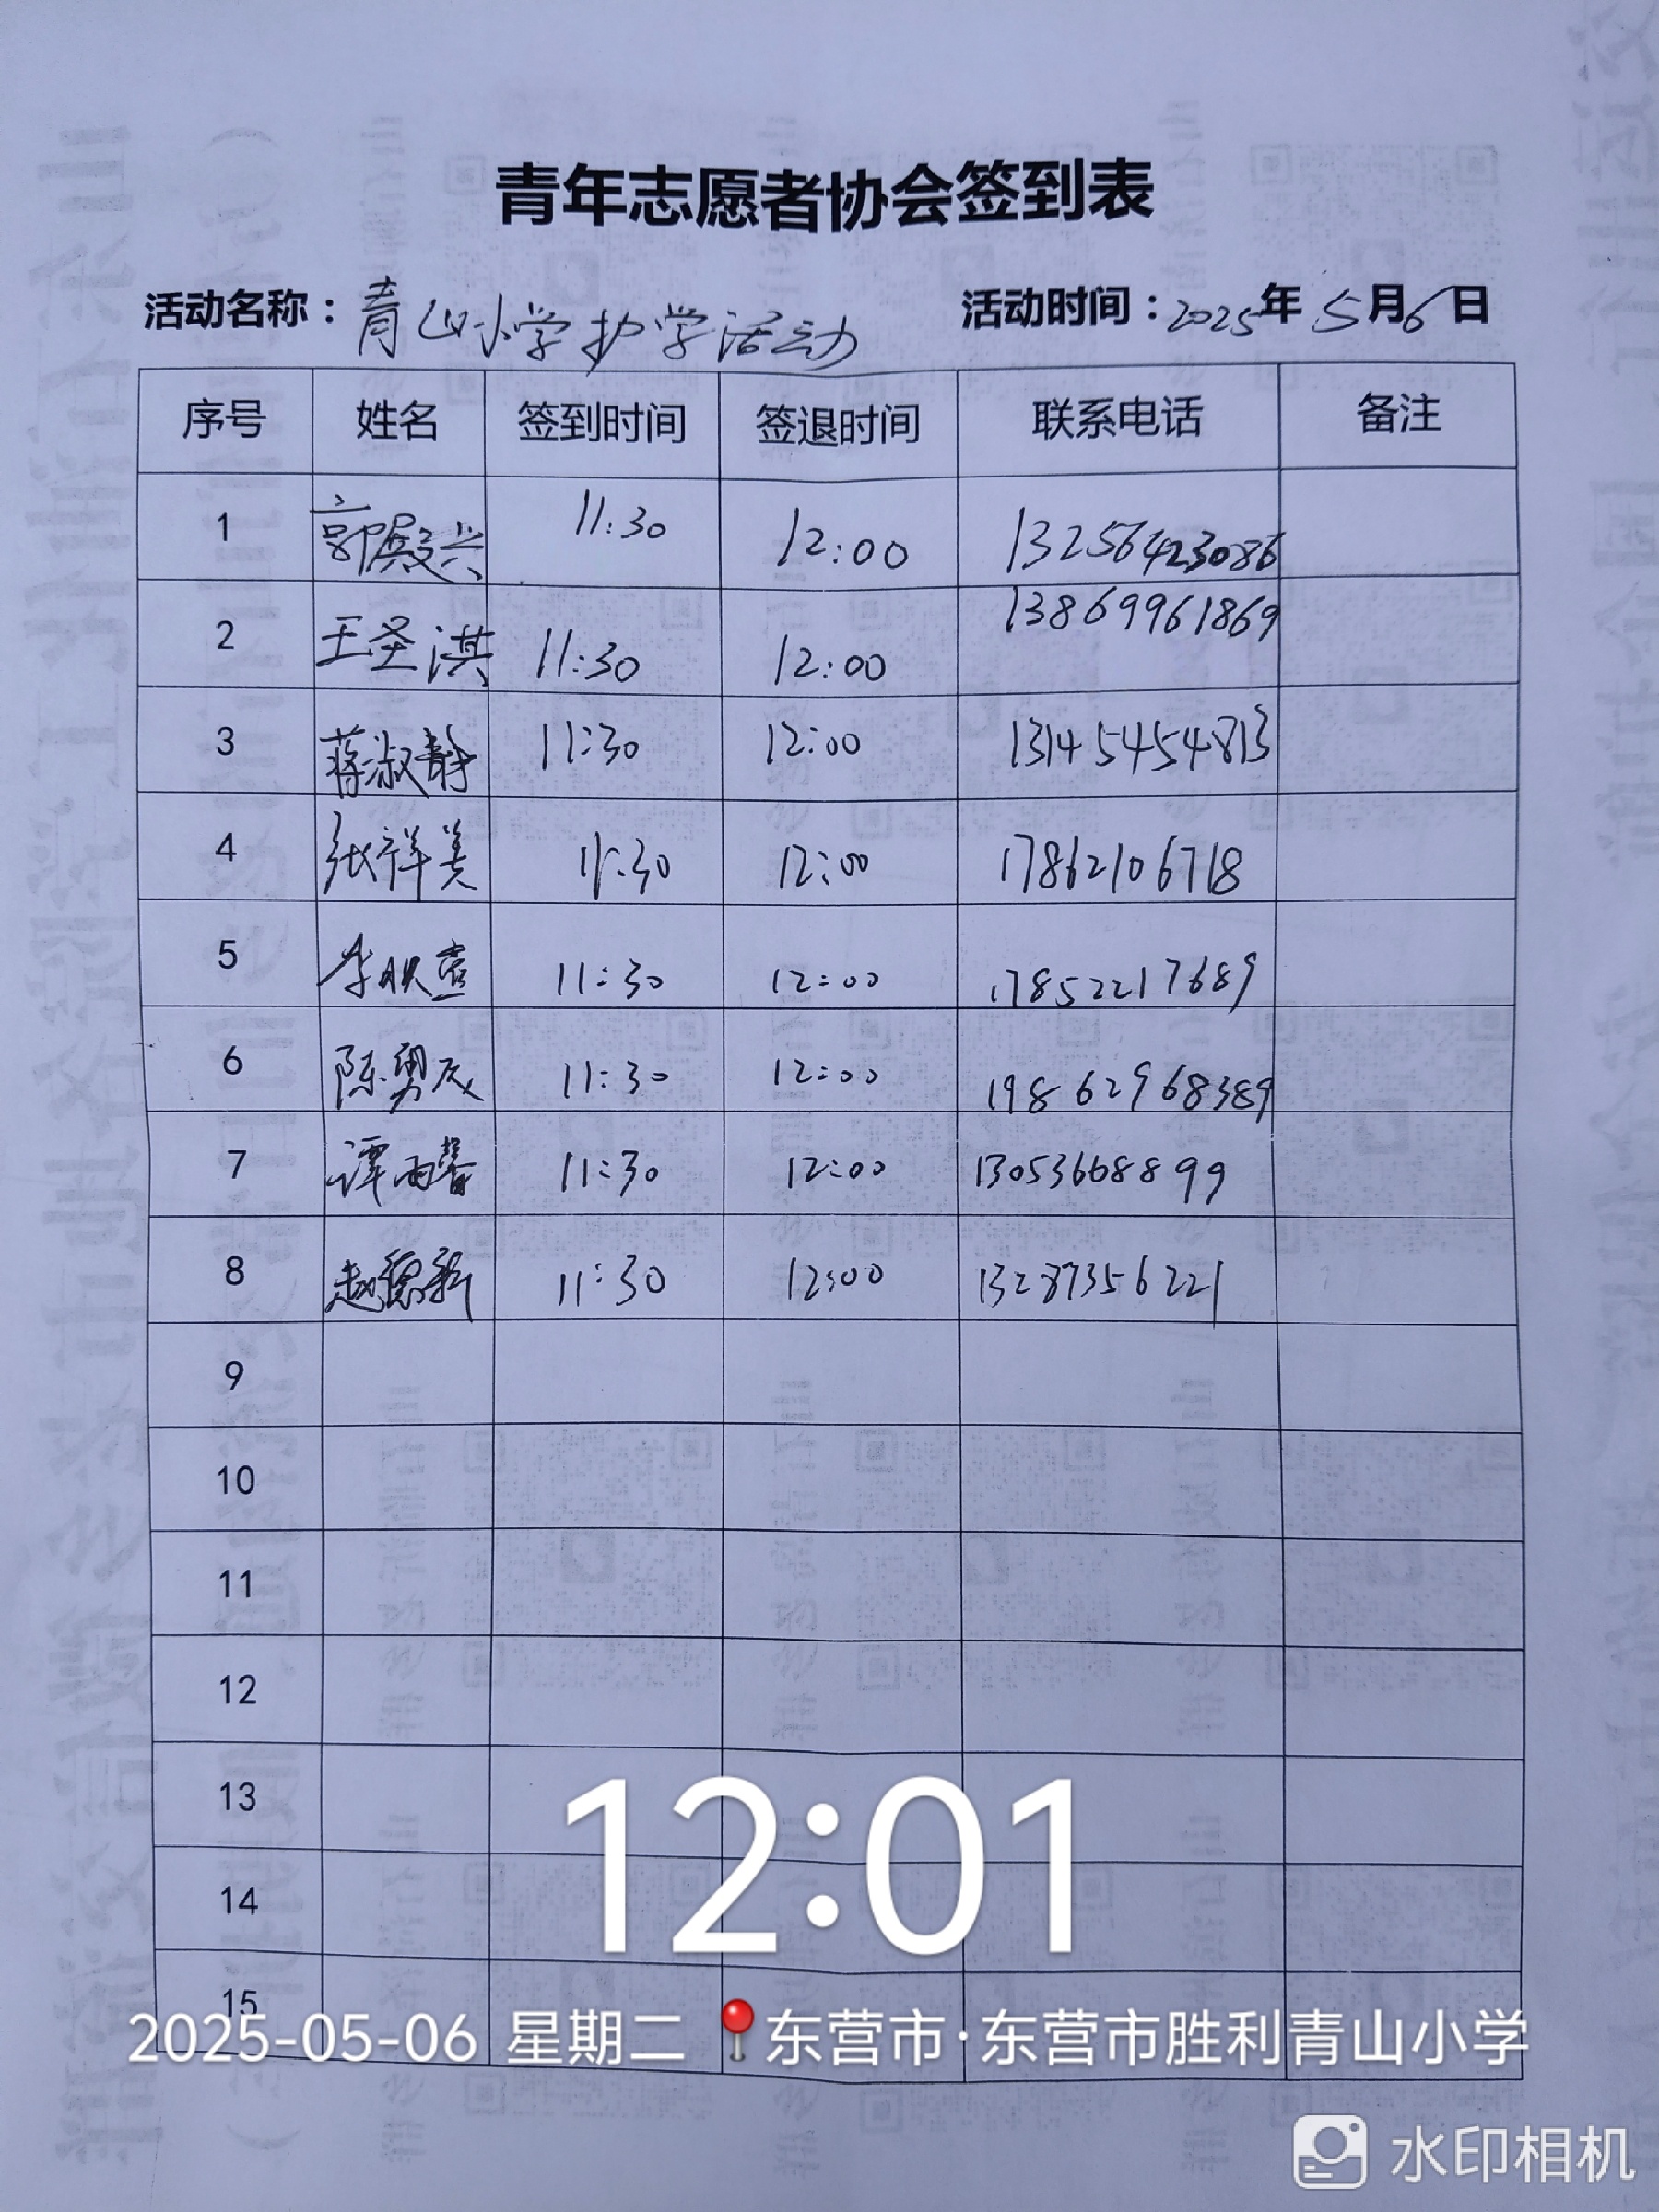 青年志愿者协会签到表
活动名称：青山小学护学活动 活动时间：2025年5月6日
序号 姓名 签到时间 签退时间 联系电话 备注
1 郭殿兴 11:30 12:00 13256423086
2 王圣淇 11:30 12:00 13869961869
3 蒋淑静 11:30 12:00 13145454813
4 张祥美 11:30 12:00 17862106718
5 11:30 12:00 17852217689
6 陈勇成 11:30 12:00 19862968389
7 谭雨馨 11:30 12:00 13053668899
8 赵德新 11:30 12:00 13287356221
9
10
11
12
13
14
15
12:01
2025-05-06 星期二 东营市·东营市胜利青山小学
水印相机